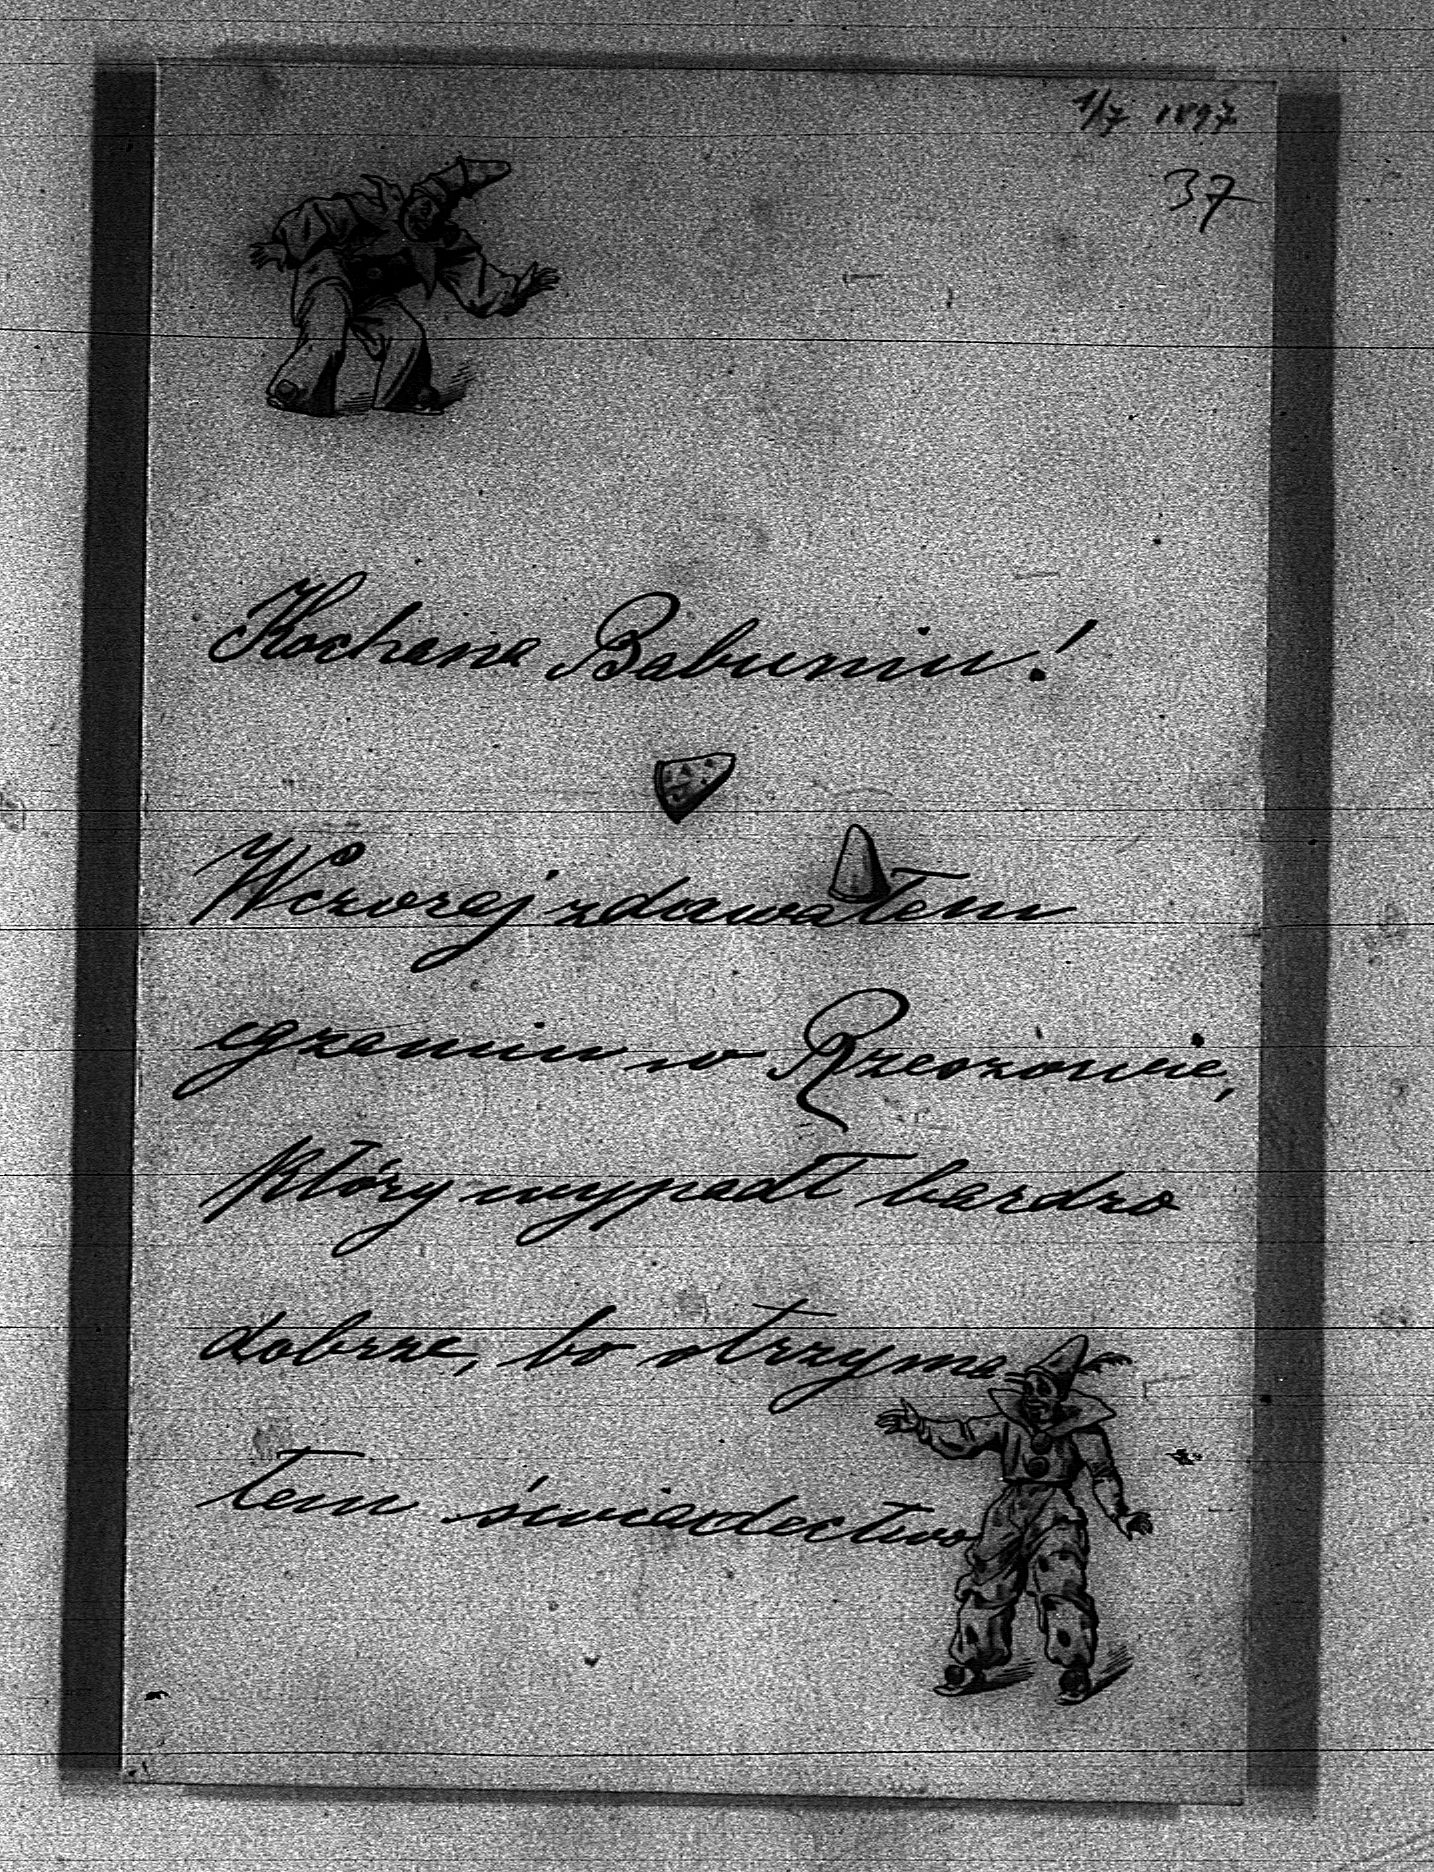 1/7 1897
37
Kochana Babuniu!
Wczoraj zdawałem
egzamin w Rzeszowie,
który wypadł bardzo
dobrze, bo otrzyma-
łem świadectwo